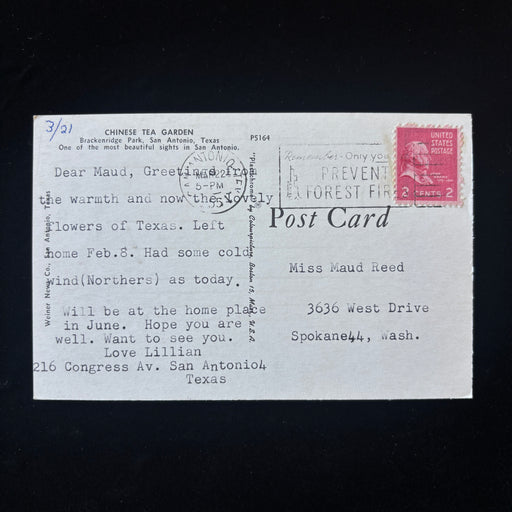 3/21
CHINESE TEA GARDEN
Brackenridge Park, San Antonio, Texas
One of the most beautiful sights in San Antonio.
P5164
SAN ANTONIO, TEX.
MAR 22
5-PM
195
Remember-Only you
PREVENT
FOREST FIR
UNITED
STATES
POSTAGE
2 CENTS 2
Dear Maud, Greetings from
the warmth and now the lovely
flowers of Texas. Left
home Feb.8. Had some cold
wind(Northers) as today.
Will be at the home place
in June. Hope you are
well. Want to see you.
Love Lillian
216 Congress Av. San Antonio4
Texas
Weiner News Co., San Antonio, Texas
"Plastichrome" by Colourpicture, Boston 15, Mass., U.S.A.
Post Card
Miss Maud Reed
3636 West Drive
Spokane44, Wash.